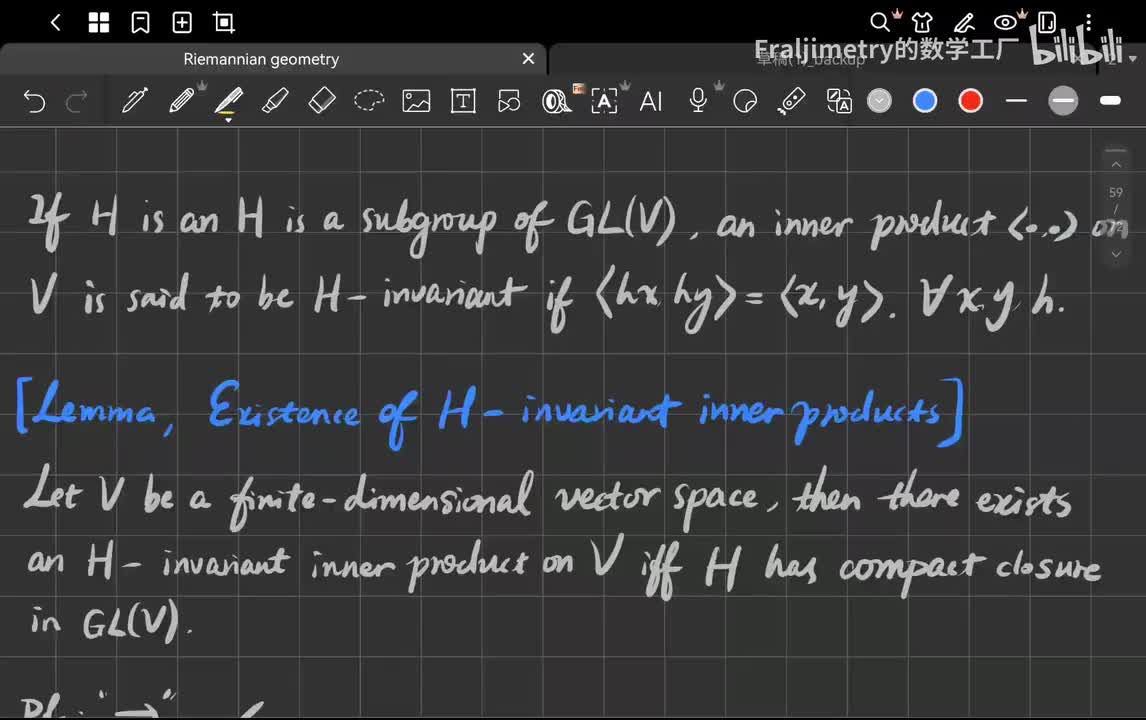 Eraljimetry的数学工厂 bilibili
Riemannian geometry
草稿(1)_backup
59
If H is an H is a subgroup of GL(V), an inner product <·,·> on
V is said to be H-invariant if <hx, hy> = <x, y>. ∀x, y h.
[Lemma, Existence of H-invariant inner products]
Let V be a finite-dimensional vector space, then there exists
an H-invariant inner product on V iff H has compact closure
in GL(V).